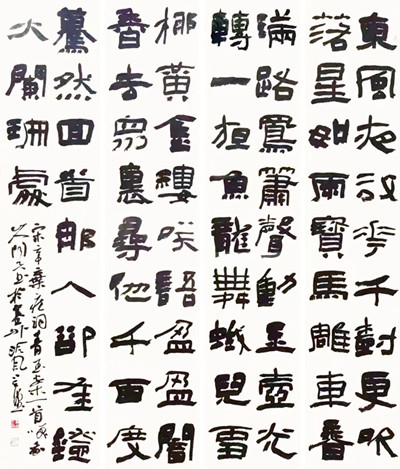 東風夜放花千樹更吹
落星如雨寶馬雕車香
滿路鳳簫聲動玉壺光
轉一夜魚龍舞蛾兒雪
柳黃金縷笑語盈盈暗
香去眾裏尋他千百度
驀然回首那人卻在燈
火闌珊處
宋辛棄疾詞青玉案一首